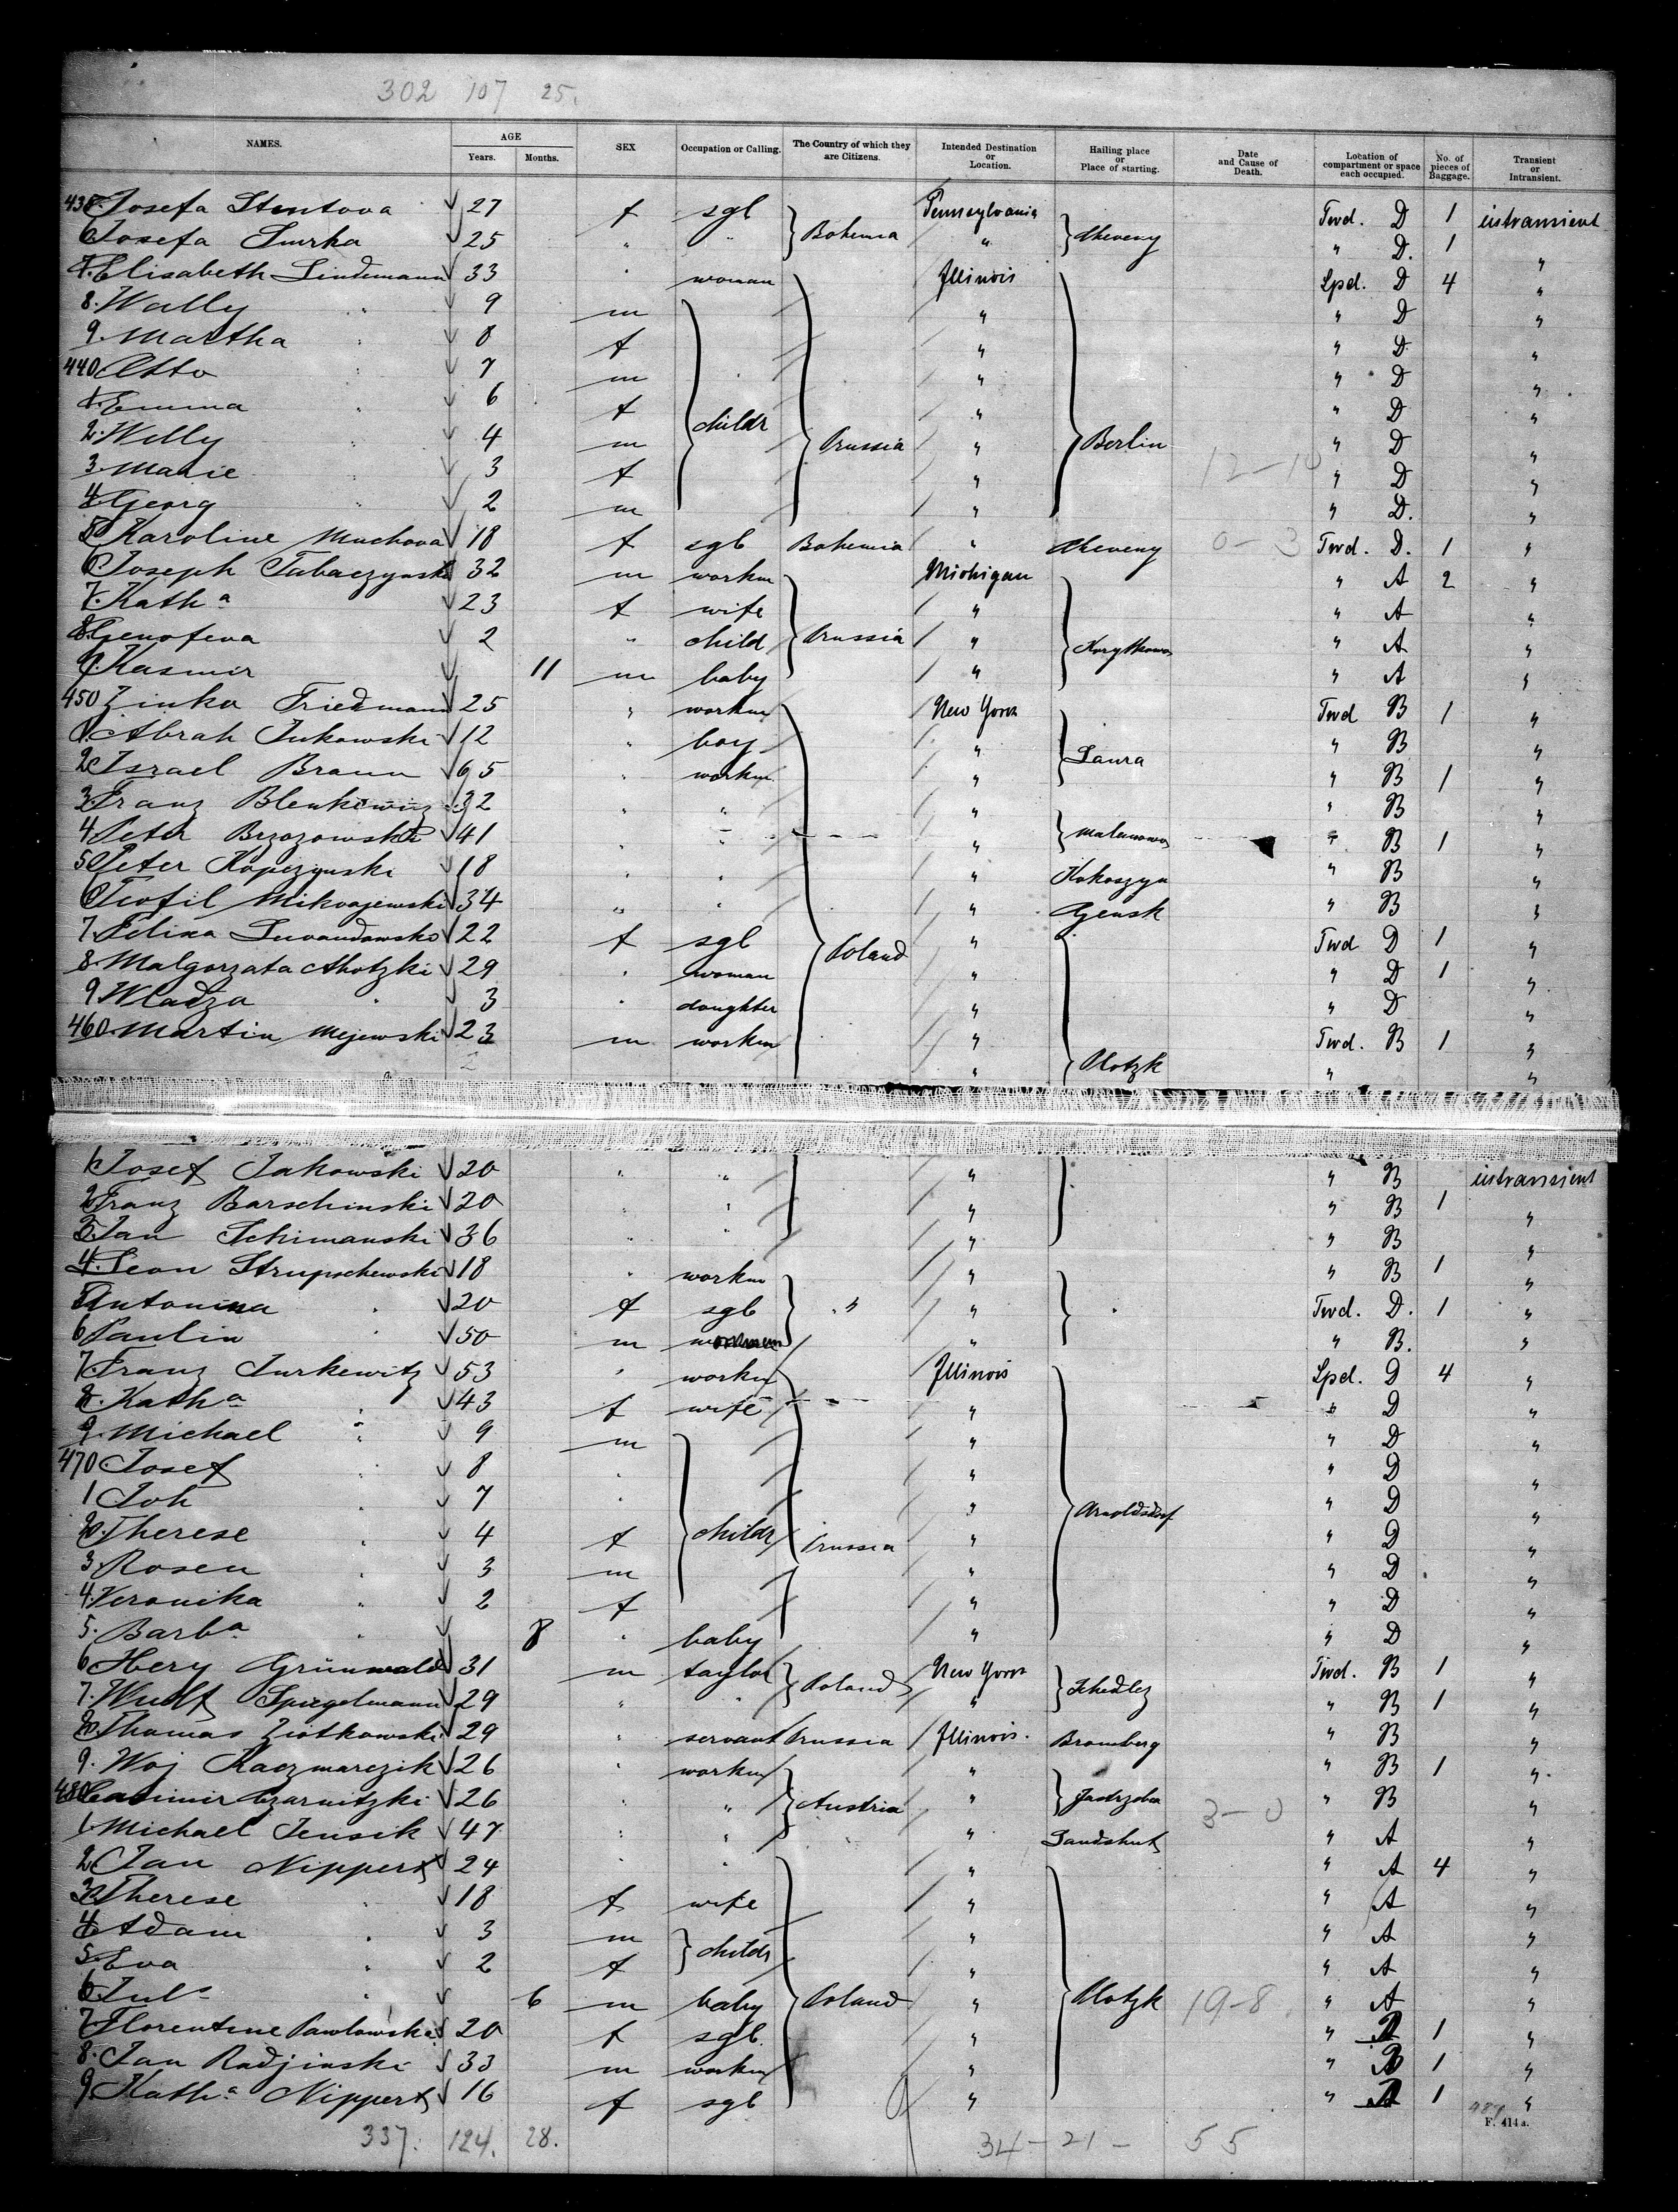 302 107 25.
NAMES. AGE SEX Occupation or Calling. The Country of which they are Citizens. Intended Destination or Location. Hailing place or Place of starting. Date and Cause of Death. Location of compartment or space each occupied. No. of pieces of Baggage. Transient or Intransient.
Years. Months.
Josefa 27 f sgl Pennsylvania Twd. D 1 intransient
6 Josefa Smrka 25 " " Bohemia " " D. 1 "
7. Elisabeth Lindemann 33 " woman Illinois Spd. D 4 "
8. Wally " 9 m " " D "
9. Martha " 8 f " " D "
440 Otto " 7 m " " D "
1. Emma " 6 f " " D "
2. Willy " 4 m childr Prussia " Berlin " D "
3. Marie " 3 f " 12-10 " D "
4. Georg " 2 m " " D. "
5 Karoline Muchova 18 f sgl Bohemia " 0-3 Twd. D. 1 "
6 Joseph Tabaczynski 32 m workm Michigan " A 2 "
7. Kath a 23 f wife " " A "
8. Genofeva 2 " child Prussia " " A "
9. Kasmir 11 m baby " " A "
450 Zinka Friedmann 25 " workm New York Twd B 1 "
1. Abrah Jukowski 12 " boy " " B "
2 Israel Braun 65 " workm " Laura " B 1 "
3. Franz 32 " " " " B "
4 Peter Brzozowski 41 " " " " B 1 "
5 Peter Kopczynski 18 " " " Kokoszya " B "
6 Teofil Mikoajewski 34 " " " Gensk " B "
7. Felixa 22 f sgl Poland " Twd D 1 "
8. Malgorzata 29 " woman " " D 1 "
9 Wladza " 3 " daughter " " D "
460. Martin Mejewski 23 m workm " Twd. B 1 "
" Plotzk " "
1. Josef Jakowski 20 " " " " B intransient
2. Franz Barschinski 20 " " " " B 1 "
3. Jan Schimanski 36 " " " " B "
4. Leon Strupschewski 18 " workm " " B 1 "
5 Antonina " 20 f sgl " " " Twd. D. 1 "
6 Paulin " 50 m " " B. "
7. Franz Jurkewitz 53 " workm Illinois Spd. D 4 "
8. Kath a " 43 f wife " " D "
9. Michael " 9 m " " D "
470 Josef " 8 " " " D "
1 Joh " 7 " " Arnoldsdorf " D "
2. Therese " 4 f childr Prussia " " D "
3. Rosen " 3 m " " D "
4. Veronika " 2 f " " D "
5. Barb a " 8 " baby " " D "
6 Hery Grünwald 31 m taylor Poland New York Twd. B 1 "
7. Wulf Spiegelmann 29 " " " Schedlez " B 1 "
8. Thomas Ziotkowski 29 " servant Prussia Illinois. Bromberg " B "
9. Woj Kaczmarczik 26 " workm " " B 1 "
480 Casimir Czarnitzki 26 " " Austria " 3-0 " B "
1. Michael Jensik 47 " " " Landshut " A "
2 Jan Nippert 24 " " " " A 4 "
3. Therese " 18 f wife " " A "
4 Adam " 3 m childr " " A "
5. Eva " 2 f " " A "
6 Jul " 6 m baby Poland " Plotzk 19-8 " A "
7. Florentine Pawlowska 20 f sgl " " 1 "
8. Jan Radjinski 33 m workm " " 1 "
9. Kath a Nippert 16 f sgl " " 1 "
337. 124. 28. 34-21- 55
F. 414 a.